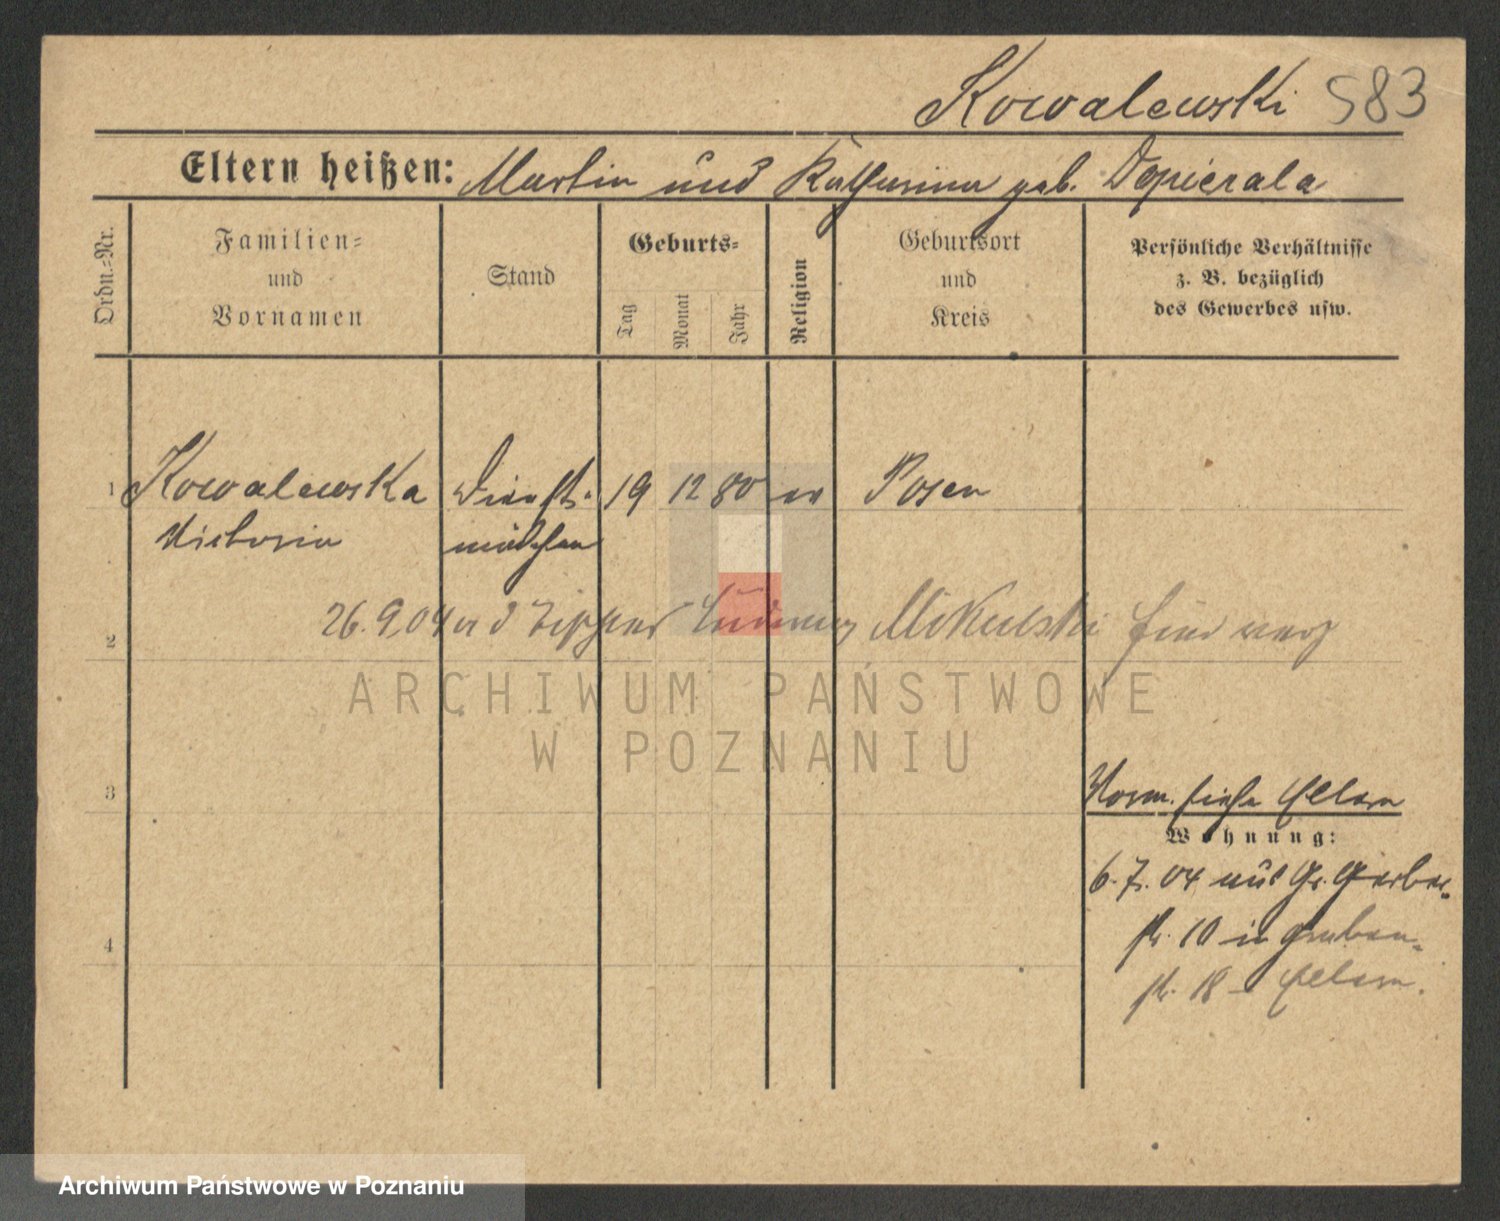 Kowalewski 583
Eltern heißen: Martin und Katharina geb. Dopierala
Ordn.-Nr.
Familien-
und
Vornamen
Stand
Geburts-
Tag
Monat
Jahr
Religion
Geburtsort
und
Kreis
Persönliche Verhältnisse
z. B. bezüglich
des Gewerbes usw.
1 Kowalewska Dienst- 19 12 80 Posen
Victoria mädchen
2 26.9.04 Ludwig Mikulski
ARCHIWUM PAŃSTWOWE
W POZNANIU
3
Vorm. siehe Eltern
Wohnung:
6.7.04 aus Gr. Gerber-
4 str. 10 in Graben-
str. 18 - Eltern.
Archiwum Państwowe w Poznaniu